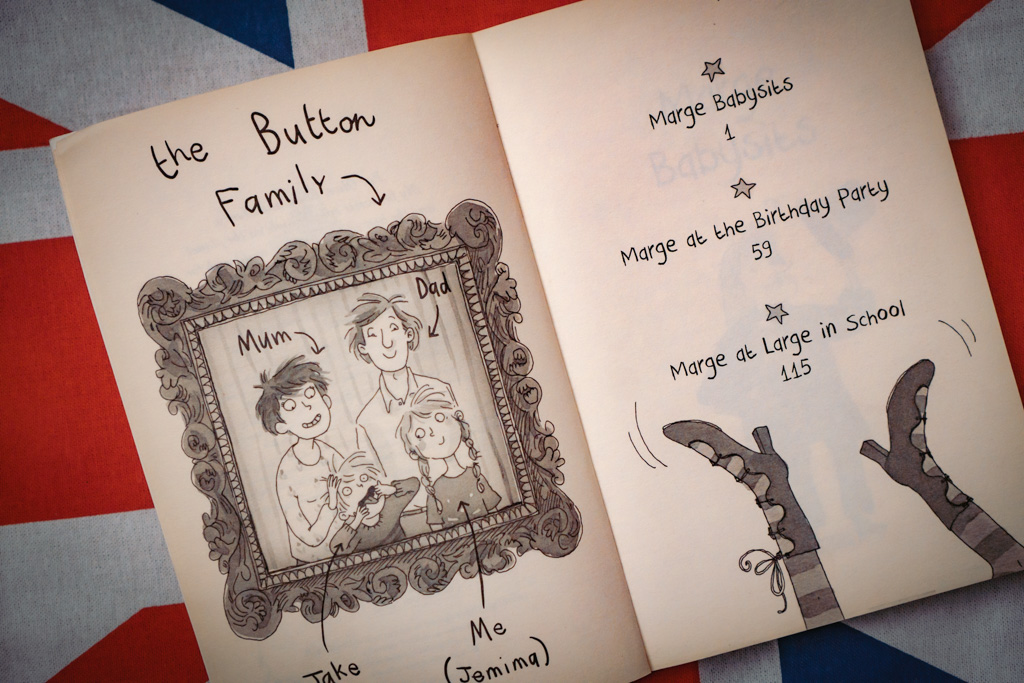 the Button
Family
Mum
Dad
Jake
Me
(Jemima)
Marge Babysits
1
Marge at the Birthday Party
59
Marge at Large in School
115